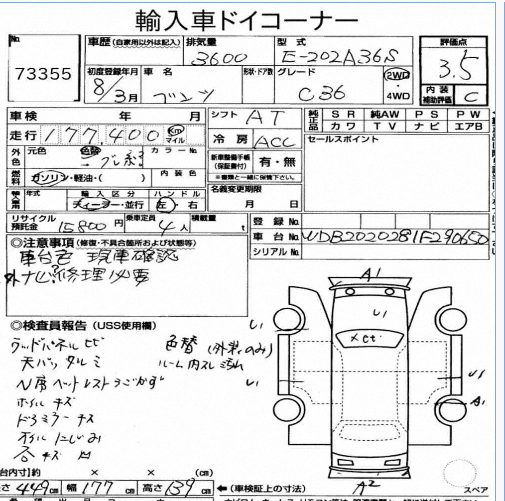 輸入車ドイコーナー
No.
73355
車歴 (自家用以外は記入)
排気量
3600
型式
E-202A36S
評価点
3.5
初度登録年月
8/3月
車名
ベンツ
形状・ドア数
グレード
C36
2WD
・
4WD
内装
補助評価
C
車検 年 月
シフト
AT
純正品
SR 純AW PS PW
カワ TV ナビ エアB
走行
177,400
km
マイル
冷房
ACC
セールスポイント
外色
元色
色替
カラーNo.
新車整備手帳
(保証書付)
有・無
※書類と一緒に保管下さい。
燃料
ガソリン・軽油・( )
内装色
名義変更期限
月 日
輸入車
年式
輸入区分
ディーラー・並行
ハンドル
左・右
リサイクル
預託金
15800円
乗車定員
4人
積載量
t
登録No.
車台No.
WDB2020281F290650
シリアルNo.
◎注意事項 (修復・不具合箇所および状態等)
車台No 現車確認
外ナビ 修理必要
◎検査員報告 (USS使用欄)
ウッドパネルヒビ
天バッタルミ
N席ヘッドレストうごかず
ホイルキズ
ドアミラーキズ
色替 (外装のみ)
ルーム内スレ
A1
U1
U1
Xヒビ
U1
U1
A1
A2
台内寸)約 × × (cm)
長さ 449cm 幅 177cm 高さ 139cm
←(車検証上の寸法)
スペア